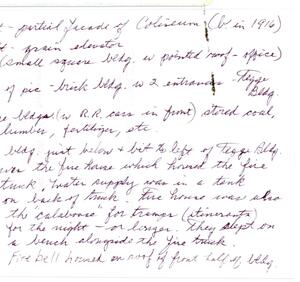 - partial facade of Coliseum (b in 1916)
- grain elevator
(small square bldg. w pointed roof - office)
of pic - brick bldg w 2 entrances. Tegge
Bldg.
bldgs (w R.R. cars in front) stored coal,
lumber, fertilizer, etc.
bldg. just below & bit to left of Tegge Bldg.
the fire house which housed the fire
truck, water supply was in a tank
on back of truck. Fire house was also
the "calaboose" for tramps (itinerants)
for the night - or longer. They slept on
a bench alongside the fire truck.
Fire bell housed on roof of front half of bldg.